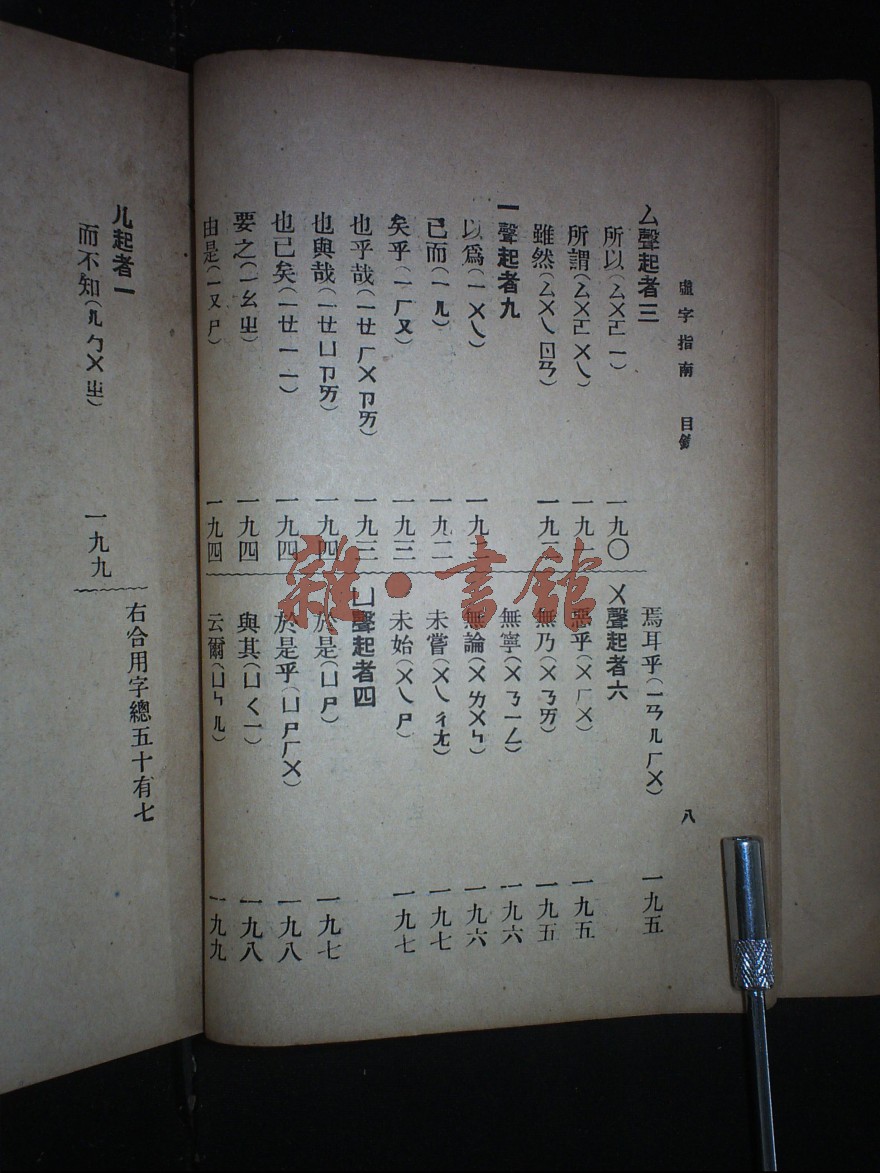 虛字指南 目錄 八
ㄙ聲起者三
所以(ㄙㄨㄛ ㄧ) 一九〇
所謂(ㄙㄨㄛ ㄨㄟ) 一九
雖然(ㄙㄨㄟ ㄖㄢ) 一九
ㄧ聲起者九
以爲(ㄧ ㄨㄟ) 一九
已而(ㄧ ㄦ) 一九二
矣乎(ㄧ ㄏㄡ) 一九三
也乎哉(ㄧㄝ ㄏㄨ ㄗㄞ) 一九三
也與哉(ㄧㄝ ㄩ ㄗㄞ) 一九四
也已矣(ㄧㄝ ㄧ ㄧ) 一九四
要之(ㄧㄠ ㄓ) 一九四
由是(ㄧㄡ ㄕ) 一九四
焉耳乎(ㄧㄢ ㄦ ㄏㄨ) 一九五
ㄨ聲起者六
惡乎(ㄨ ㄏㄨ) 一九五
無乃(ㄨ ㄋㄞ) 一九五
無寧(ㄨ ㄋㄧㄥ) 一九六
無論(ㄨ ㄌㄨㄣ) 一九六
未嘗(ㄨㄟ ㄔㄤ) 一九七
未始(ㄨㄟ ㄕ) 一九七
ㄩ聲起者四
於是(ㄩ ㄕ) 一九七
於是乎(ㄩ ㄕ ㄏㄨ) 一九八
與其(ㄩ ㄑㄧ) 一九八
云爾(ㄩㄣ ㄦ) 一九九
ㄦ起者一
而不知(ㄦ ㄅㄨ ㄓ) 一九九
右合用字總五十有七
雜·書館